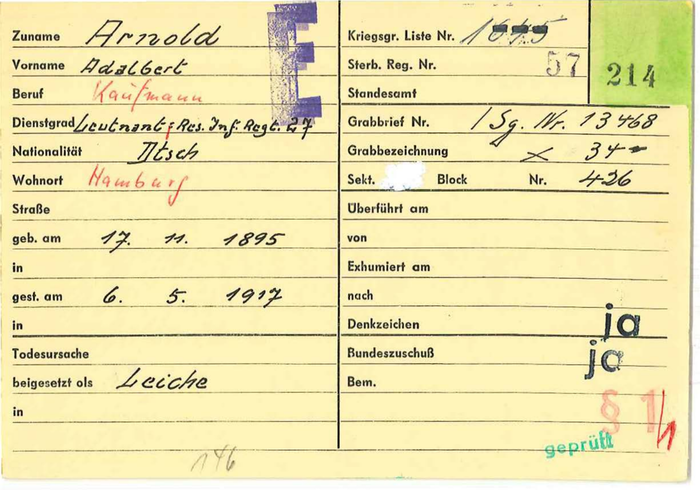 Zuname Arnold
Vorname Adalbert
Beruf Kaufmann
Dienstgrad Leutnant; Res. Inf. Regt. 27
Nationalität Dtsch
Wohnort Hamburg
Straße
geb. am 17. 11. 1895
in
gest. am 6. 5. 1917
in
Todesursache
beigesetzt als Leiche
in
146
Kriegsgr. Liste Nr.
Sterb. Reg. Nr. 57
214
Standesamt
Grabbrief Nr. / Sg. Nr. 13468
Grabbezeichnung x 34
Sekt. Block Nr. 426
Überführt am
von
Exhumiert am
nach
Denkzeichen ja
Bundeszuschuß ja
Bem.
§ 1/1
geprüft